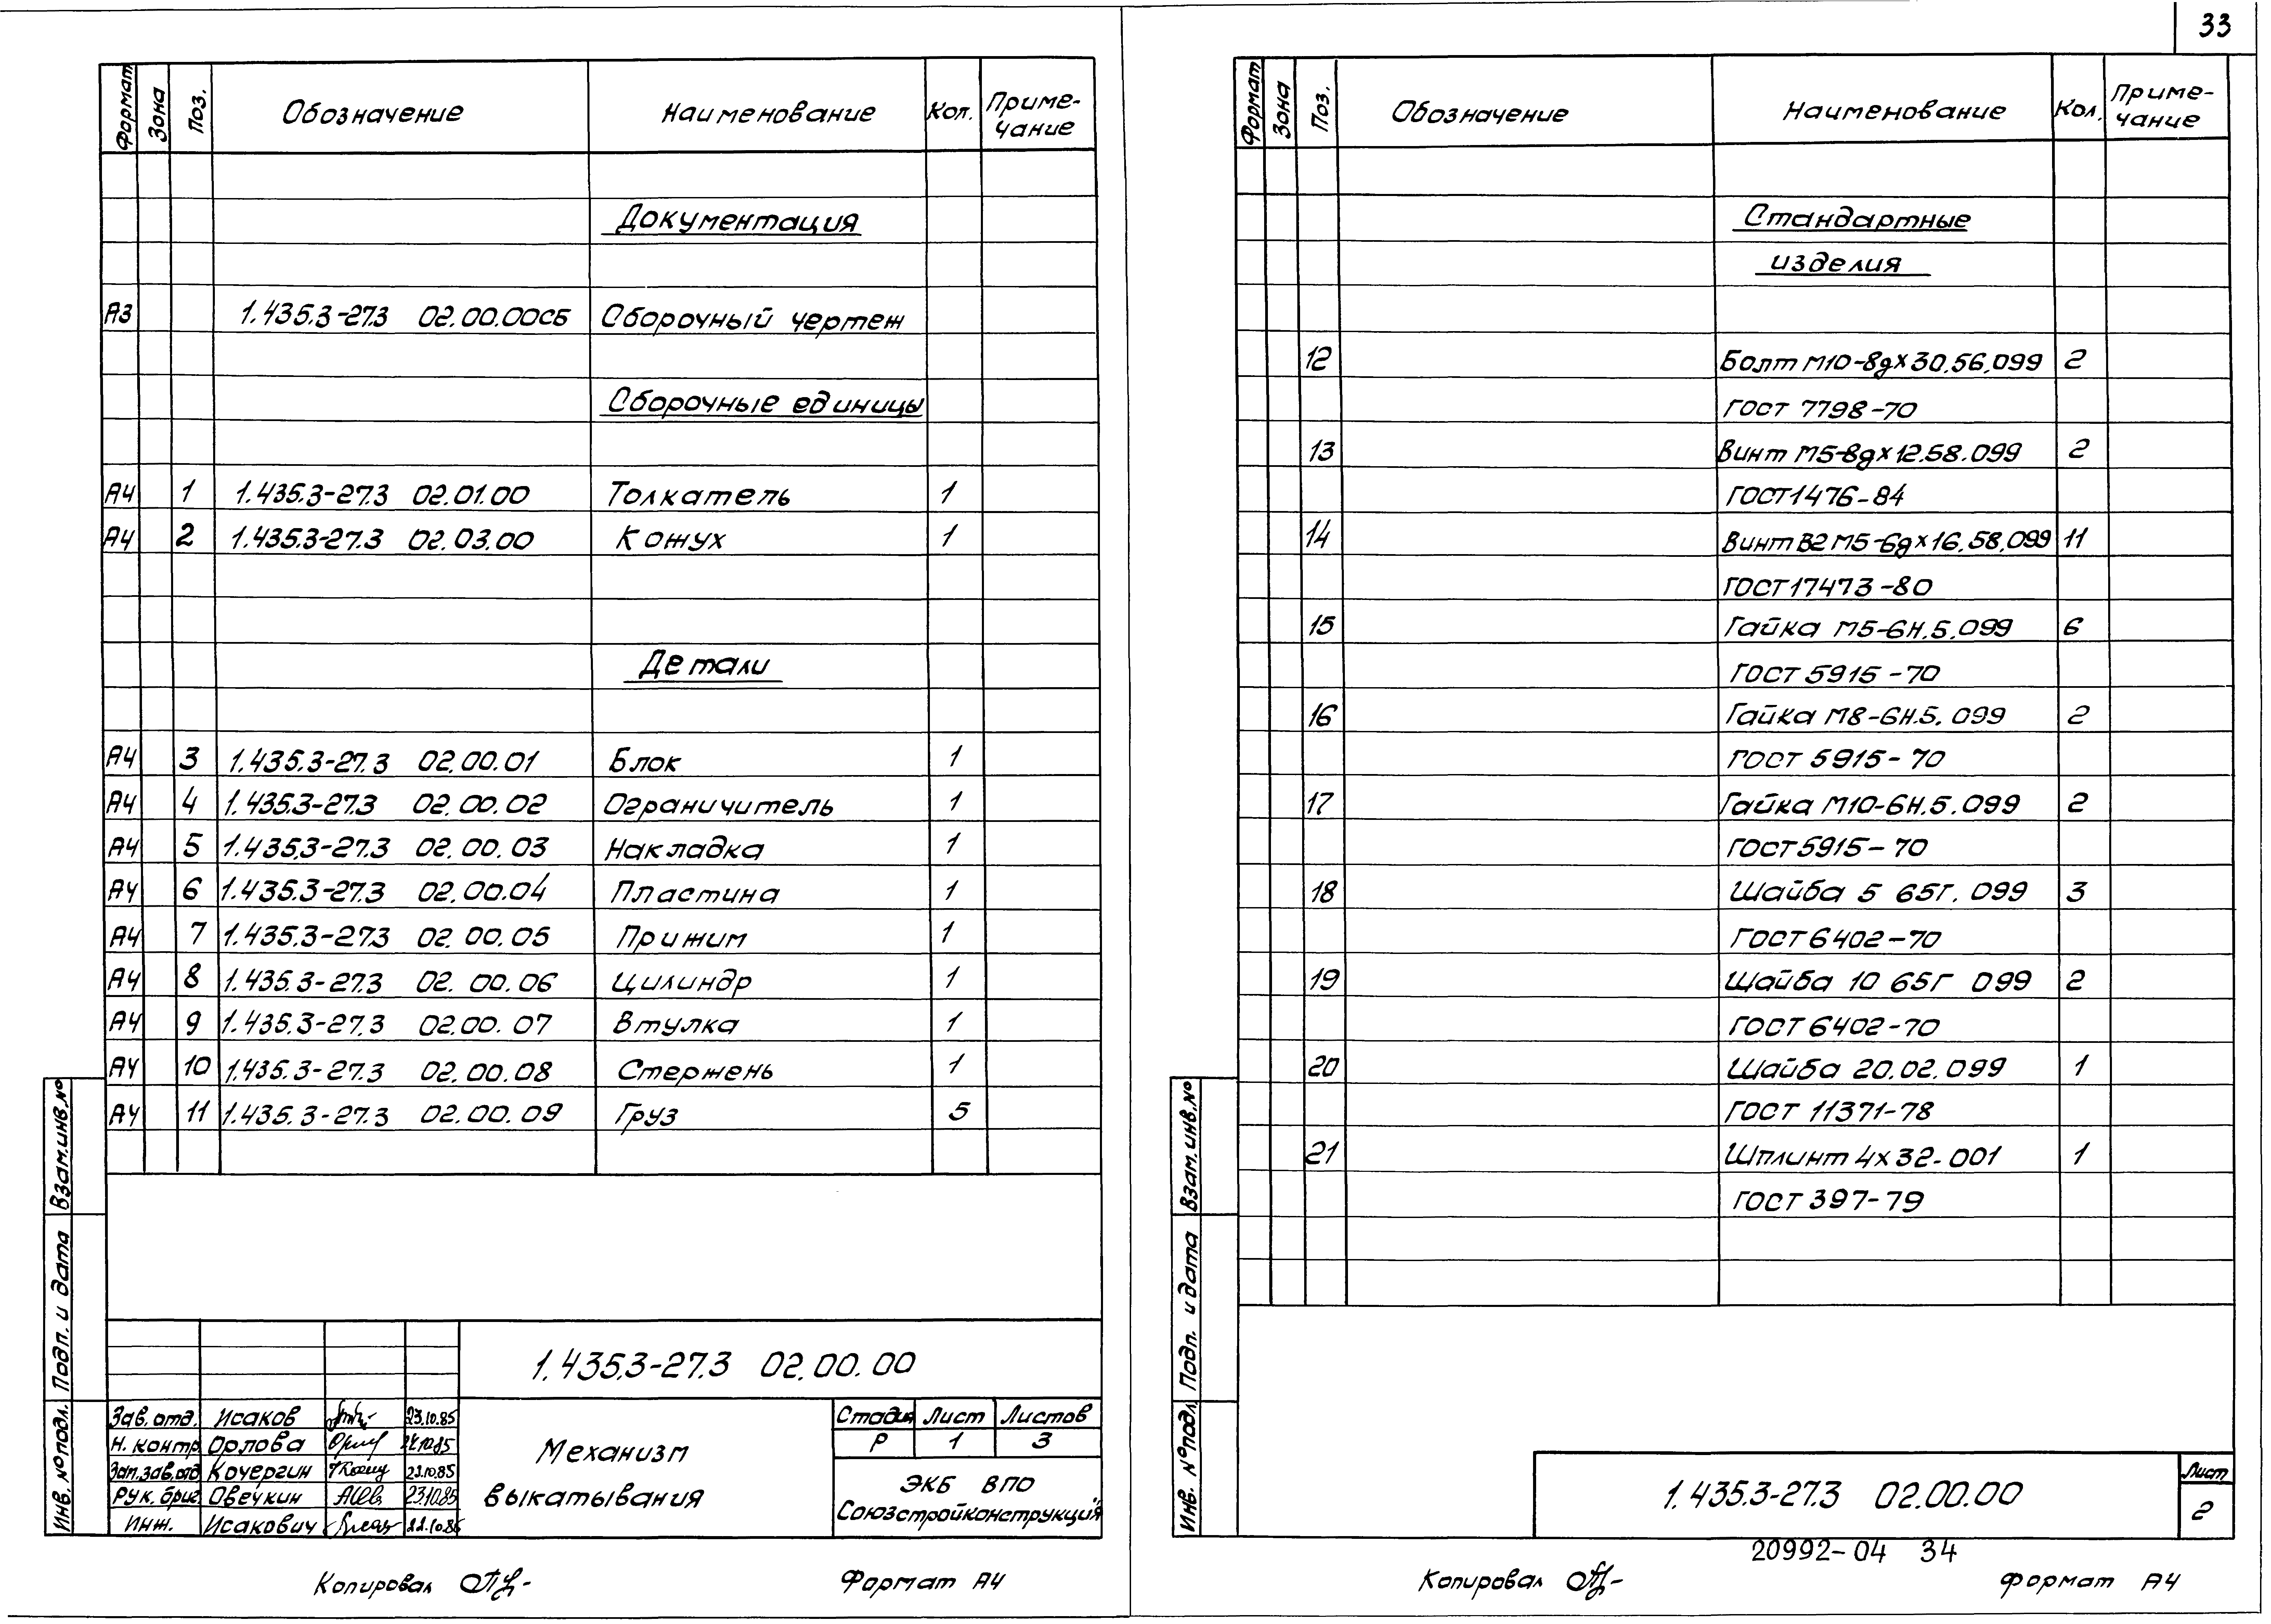 33
Формат Зона Поз. Обозначение Наименование Кол. Приме-
чание
Документация
А3 1.435.3-27.3 02.00.00СБ Сборочный чертеж
Сборочные единицы
А4 1 1.435.3-27.3 02.01.00 Толкатель 1
А4 2 1.435.3-27.3 02.03.00 Кожух 1
Детали
А4 3 1.435.3-27.3 02.00.01 Блок 1
А4 4 1.435.3-27.3 02.00.02 Ограничитель 1
А4 5 1.435.3-27.3 02.00.03 Накладка 1
А4 6 1.435.3-27.3 02.00.04 Пластина 1
А4 7 1.435.3-27.3 02.00.05 Прижим 1
А4 8 1.435.3-27.3 02.00.06 Цилиндр 1
А4 9 1.435.3-27.3 02.00.07 Втулка 1
А4 10 1.435.3-27.3 02.00.08 Стержень 1
А4 11 1.435.3-27.3 02.00.09 Груз 5
Взам.инв.№
Подп. и дата
Инв. № подл.
1.435.3-27.3 02.00.00
Зав. отд. Исаков 23.10.85
Н. контр. Орлова
Зам.зав.отд Кочергин 23.10.85
Рук. бриг. Овечкин 23.10.85
Инж. Исакович 22.10.85
Механизм
выкатывания
Стадия Лист Листов
Р 1 3
ЭКБ ВПО
Союзстройконструкция
Копировал
Формат А4
Формат Зона Поз. Обозначение Наименование Кол. Приме-
чание
Стандартные
изделия
12 Болт М10-8gх30.56.099 2
ГОСТ 7798-70
13 Винт М5-8gх12.58.099 2
ГОСТ 1476-84
14 Винт В2 М5-6gх16.58.099 11
ГОСТ 17473-80
15 Гайка М5-6Н.5.099 6
ГОСТ 5915-70
16 Гайка М8-6Н.5.099 2
ГОСТ 5915-70
17 Гайка М10-6Н.5.099 2
ГОСТ 5915-70
18 Шайба 5 65Г.099 3
ГОСТ 6402-70
19 Шайба 10 65Г 099 2
ГОСТ 6402-70
20 Шайба 20.02.099 1
ГОСТ 11371-78
21 Шплинт 4х32-001 1
ГОСТ 397-79
Взам.инв.№
Подп. и дата
Инв. № подл.
1.435.3-27.3 02.00.00
Лист
2
20992-04 34
Копировал
Формат А4